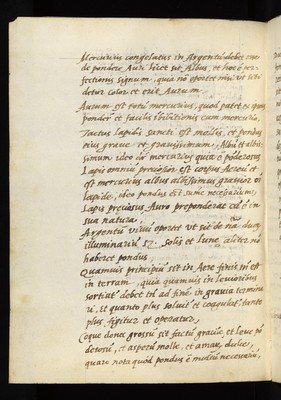 Mercurius congelatus in Argentũ debet esse
de pondere Auri licet sit Albus, et hoc ẽ per-
fectionis signum, quia nõ oportet nisi ut sibi
detur color et erit Aurum.
Aurum est totũ mercurius, quod patet ex
ponder et facilis cum mercurio,
Tactus lapidis sancti est mollis, et pondus
eius grave et gravissimum, Albũ et albis-
simum ideo mercurius quia ẽ põderosus
Lapis omniũ preciosior est corpus Aeris et
est mercurius albus albissimus gravior oĩ
lapide, ideo pondus est sume necessarium,
Lapis preciosus Auro preponderat in
sua natura.
Argentũ vivũ oportet ut sit de
illuminariũ solis et lune, aliter nõ
haberet pondus.
Quamuis principiũ sit in Aere finis est
in terram, quia quamuis in levioribus
debet ad finẽ in gravia termina
ri, et quanto plus soluit et coagulat, tanto
plus figitur et operatur.
Coque donec grossũ sit factũ gracile, et leve põ
derosũ, et asperũ molle, et amarũ dulce,
quare nota quod pondus ẽ necessariũ,